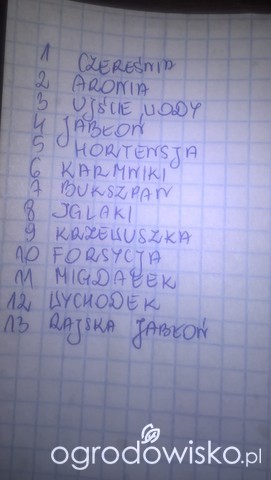 1 CZEREŚNIA
2 ARONIA
3 UJŚCIE WODY
4 JABŁOŃ
5 HORTENSJA
6 KARMNIKI
7 BUKSZPAN
8 IGLAKI
9 KRZEWUSZKA
10 FORSYCJA
11 MIGDAŁEK
12 WYCHODEK
13 RAJSKA JABŁOŃ
ogrodowisko.pl